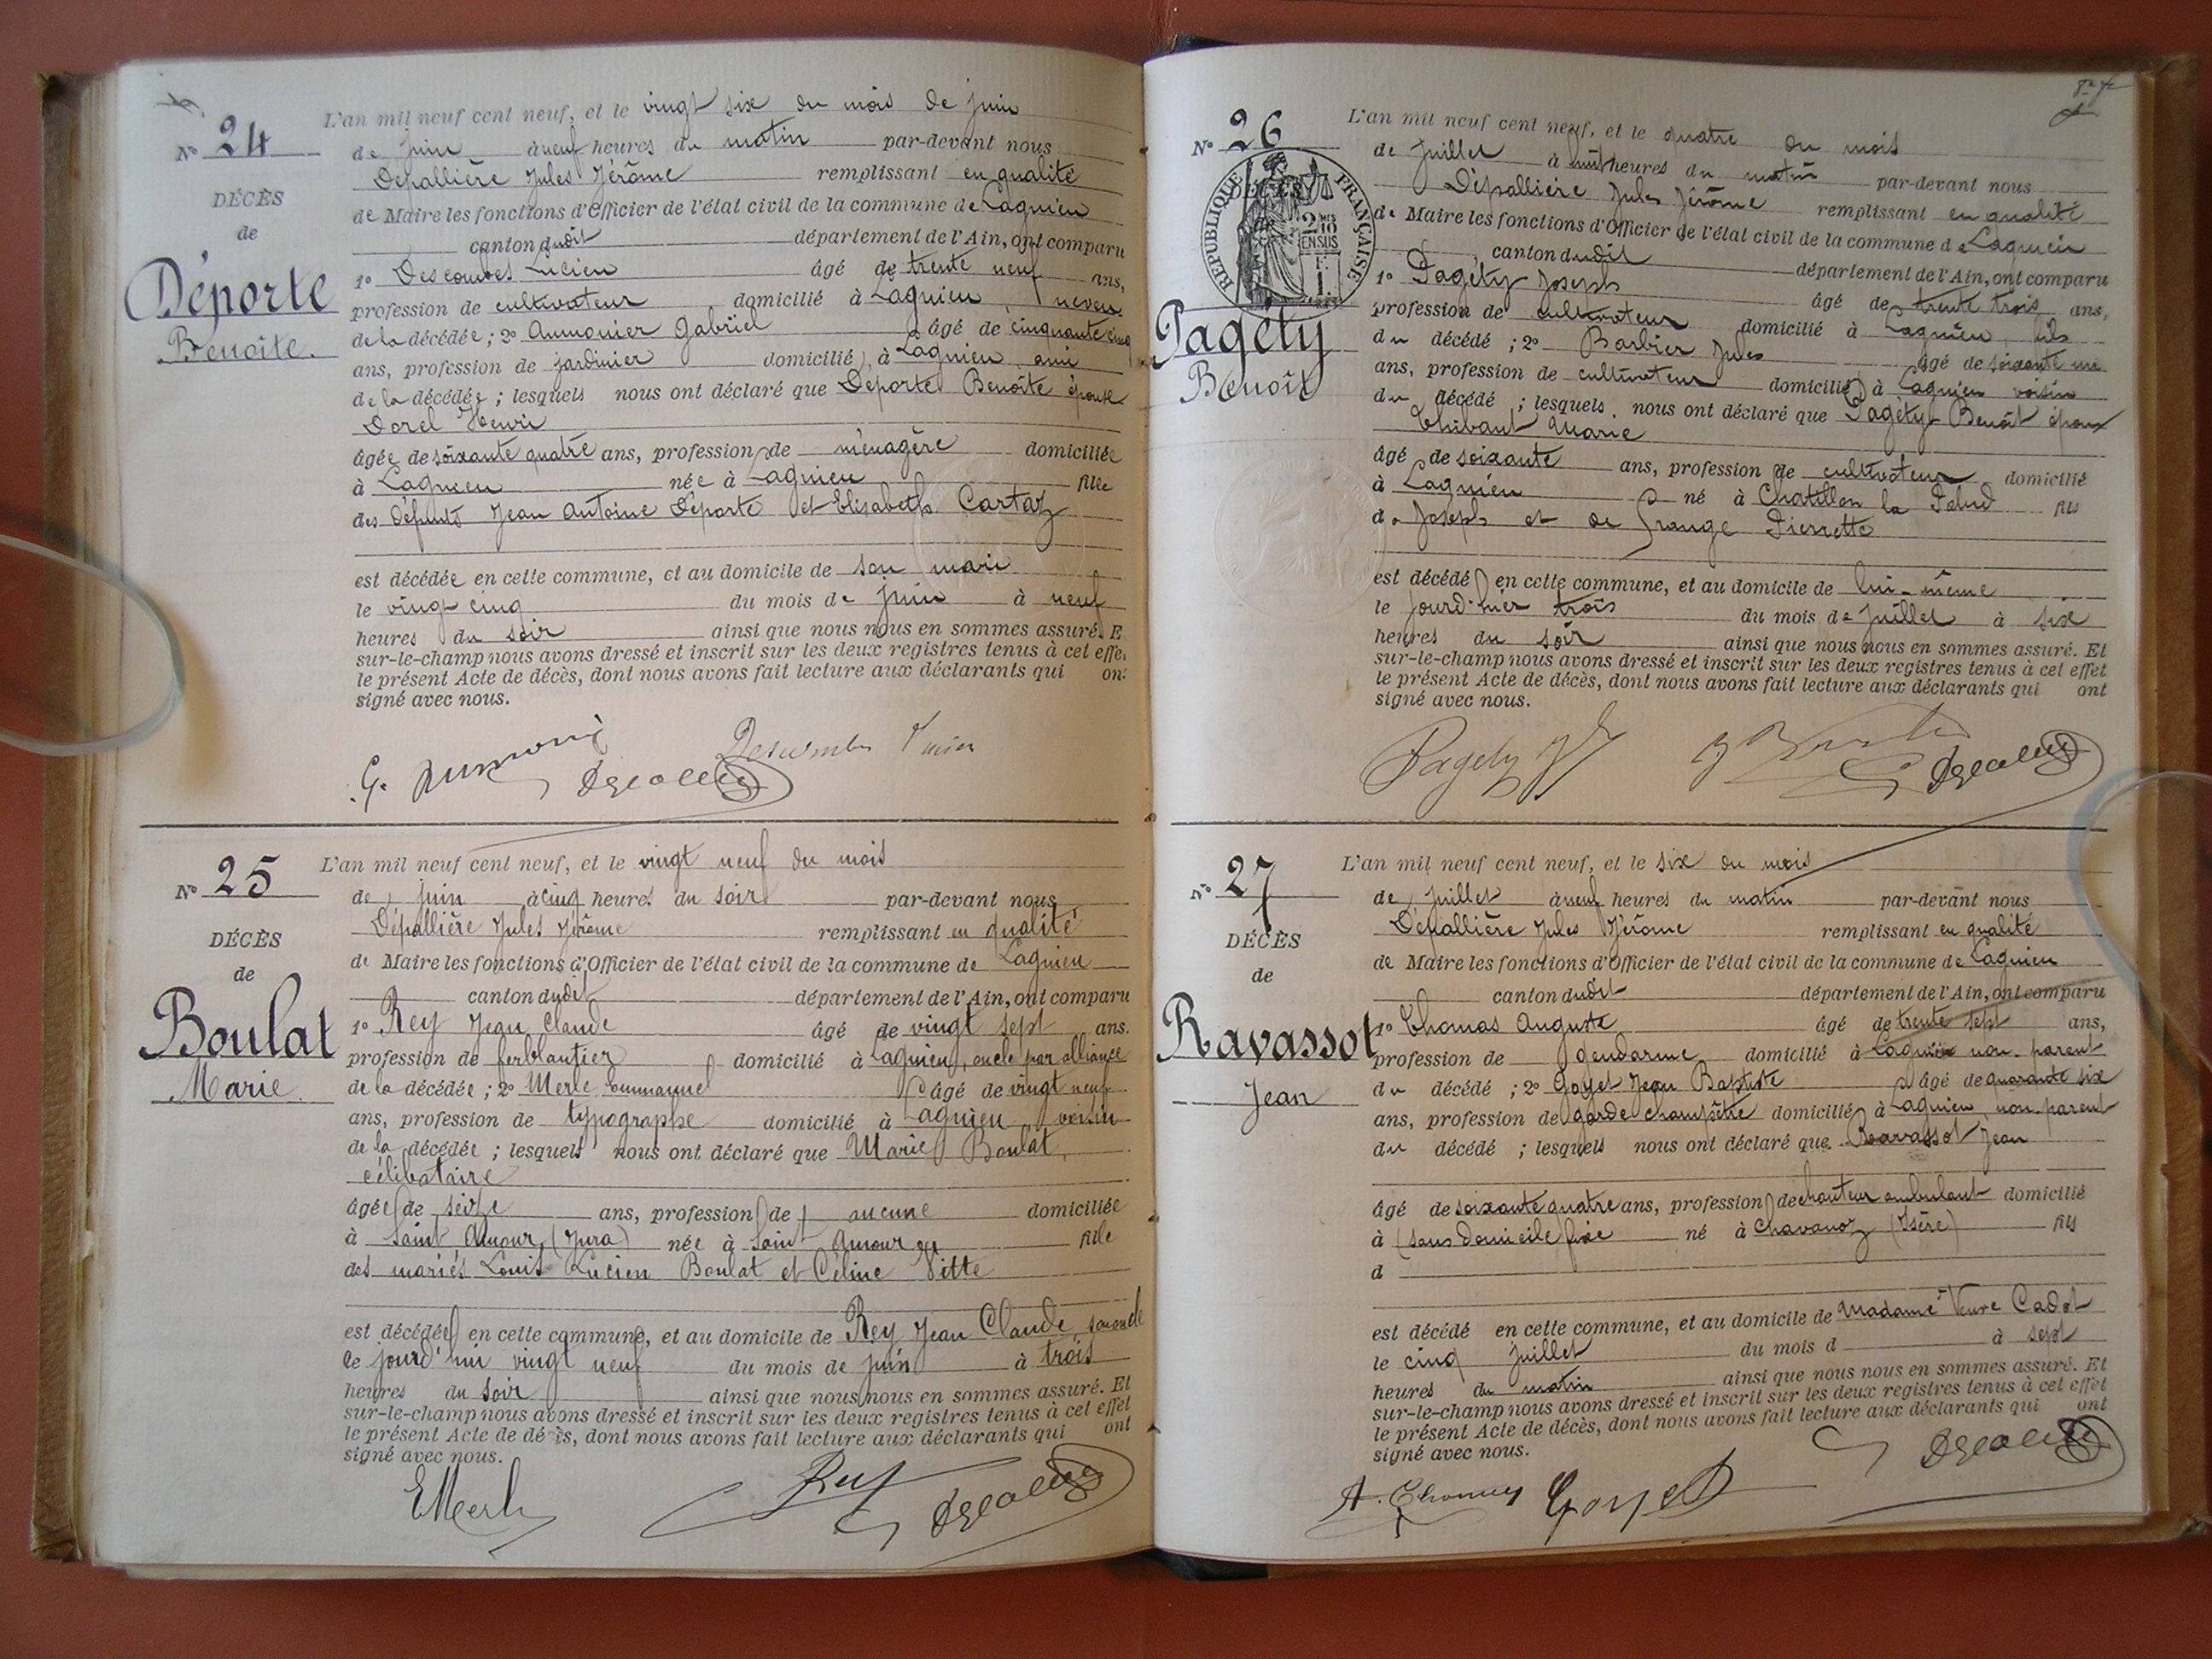 N° 24
DÉCÈS
de
Déporte
Benoîte.
L'an mil neuf cent neuf, et le vingt six du mois de juin
de juin à neuf heures du matin par-devant nous
Dépallière Jules Jérôme remplissant en qualité
de Maire les fonctions d'Officier de l'état civil de la commune de Lagnieu
canton dudit département de l'Ain, ont comparu
1° Descombes Lucien âgé de trente neuf ans,
profession de cultivateur domicilié à Lagnieu, neveu
de la décédée ; 2° Aumonier Gabriel âgé de cinquante cinq
ans, profession de jardinier domicilié à Lagnieu ami
de la décédée ; lesquels nous ont déclaré que Déporte Benoîte épouse
Dorel Henri
âgée de soixante quatre ans, profession de ménagère domiciliée
à Lagnieu née à Lagnieu fille
des défunts Jean Antoine Déporte et Elisabeth Cartaz
est décédée en cette commune, et au domicile de son mari
le vingt cinq du mois de juin à neuf
heures du soir ainsi que nous nous en sommes assuré. E
sur-le-champ nous avons dressé et inscrit sur les deux registres tenus à cet effe
le présent Acte de décès, dont nous avons fait lecture aux déclarants qui on
signé avec nous.
N° 25
DÉCÈS
de
Boulat
Marie.
L'an mil neuf cent neuf, et le vingt neuf du mois
de juin à cinq heures du soir par-devant nous
Dépallière Jules Jérôme remplissant en qualité
de Maire les fonctions d'Officier de l'état civil de la commune de Lagnieu
canton dudit département de l'Ain, ont comparu
1° Rey Jean Claude âgé de vingt sept ans.
profession de ferblantier domicilié à Lagnieu, oncle par alliance
de la décédée ; 2° Merle Emmanuel âgé de vingt neuf
ans, profession de typographe domicilié à Lagnieu voisin
de la décédée ; lesquels nous ont déclaré que Marie Boulat,
célibataire
âgée de seize ans, profession de aucune domiciliée
à Saint Amour (Jura) née à Saint Amour fille
des mariés Louis Lucien Boulat et Céline Vitte
est décédée en cette commune, et au domicile de Rey Jean Claude son oncle
ce jourd'hui vingt neuf du mois de juin à trois
heures du soir ainsi que nous nous en sommes assuré. Et
sur-le-champ nous avons dressé et inscrit sur les deux registres tenus à cet effet
le présent Acte de décès, dont nous avons fait lecture aux déclarants qui ont
signé avec nous.
EMerle Rey
N° 26
RÉPUBLIQUE FRANÇAISE
2/10 EN SUS
Pagéty
Benoît
L'an mil neuf cent neuf, et le quatre du mois
de Juillet à huit heures du matin par-devant nous
Dépallière Jules Jérôme remplissant en qualité
de Maire les fonctions d'Officier de l'état civil de la commune de Lagnieu
canton dudit département de l'Ain, ont comparu
1° Pagéty Joseph âgé de trente trois ans,
profession de cultivateur domicilié à Lagnieu, fils
du décédé ; 2° Barbier Jules âgé de soixante un
ans, profession de cultivateur domicilié à Lagnieu voisin
du décédé ; lesquels nous ont déclaré que Pagéty Benoît époux
Thibaut Marie
âgé de soixante ans, profession de cultivateur domicilié
à Lagnieu né à Chatillon la Palud fils
de Joseph et de Grange Pierrette
est décédé en cette commune, et au domicile de lui-même
le jourd'hier trois du mois de Juillet à six
heures du soir ainsi que nous nous en sommes assuré. Et
sur-le-champ nous avons dressé et inscrit sur les deux registres tenus à cet effet
le présent Acte de décès, dont nous avons fait lecture aux déclarants qui ont
signé avec nous.
Pagety
N° 27
DÉCÈS
de
Ravassot
Jean
L'an mil neuf cent neuf, et le six du mois
de Juillet à neuf heures du matin par-devant nous
Dépallière Jules Jérôme remplissant en qualité
de Maire les fonctions d'Officier de l'état civil de la commune de Lagnieu
canton dudit département de l'Ain, ont comparu
1° Thomas Auguste âgé de trente sept ans,
profession de gendarme domicilié à Lagnieu non parent
du décédé ; 2° Goyet Jean Baptiste âgé de quarante six
ans, profession de garde champêtre domicilié à Lagnieu, non parent
du décédé ; lesquels nous ont déclaré que Ravassot Jean
âgé de soixante quatre ans, profession de chanteur ambulant domicilié
à (sans domicile fixe né à Chavanoz (Isère) fils
d
est décédé en cette commune, et au domicile de Madame Veuve Cadot
le cinq Juillet du mois d à sept
heures du matin ainsi que nous nous en sommes assuré. Et
sur-le-champ nous avons dressé et inscrit sur les deux registres tenus à cet effet
le présent Acte de décès, dont nous avons fait lecture aux déclarants qui ont
signé avec nous.
A. Thomas Goyet